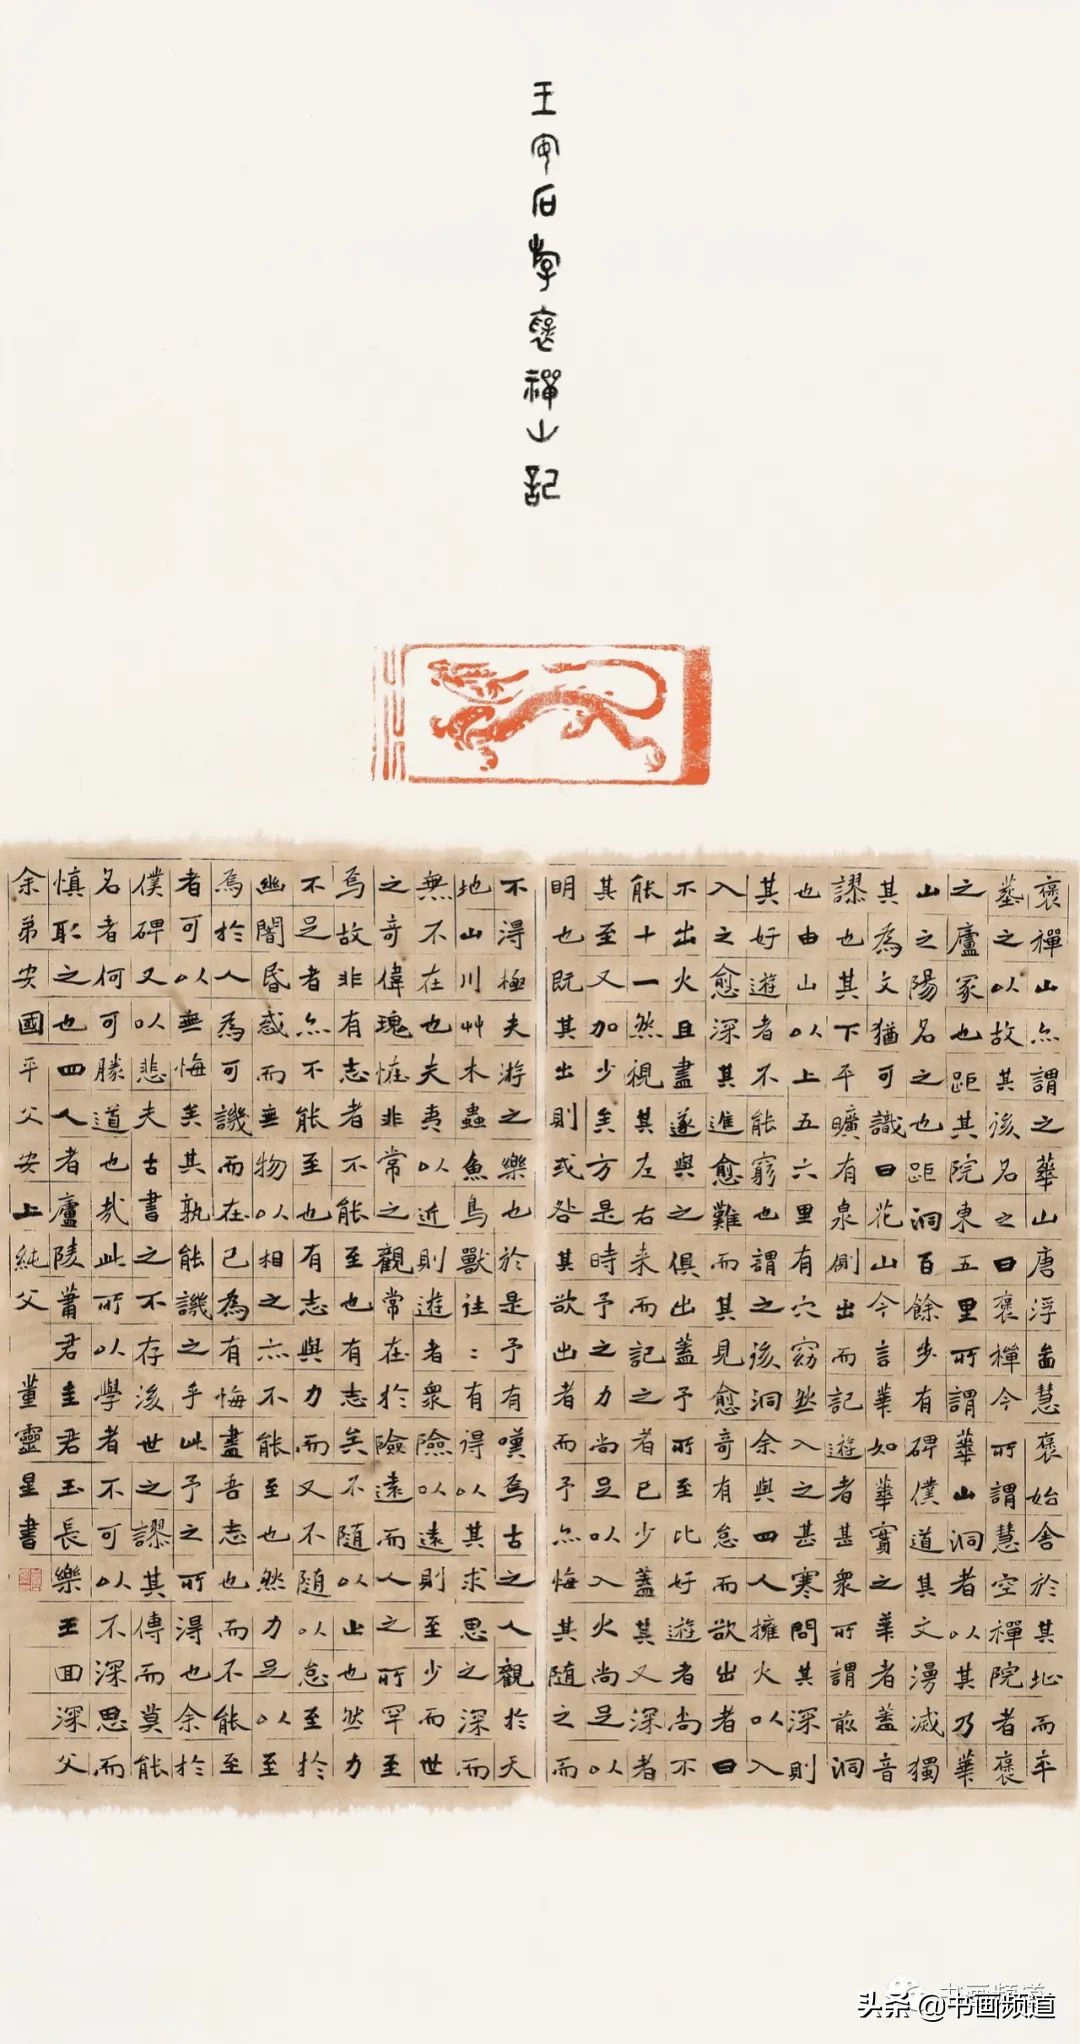 王安石游褒禪山記
褒禪山亦謂之華山唐浮啚慧褒始舍於其址而卒
塟之以故其後名之曰褒禪今所謂慧空禪院者褒
之廬冢也距其院東五里所謂華山洞者以其乃華
山之陽名之也距洞百餘步有碑僕道其文漫滅獨
其為文猶可識曰花山今言華如華實之華者蓋音
謬也其下平曠有泉側出而記遊者甚衆所謂前洞
也由山以上五六里有穴窈然入之甚寒問其深則
其好遊者不能窮也謂之後洞余與四人擁火以入
入之愈深其進愈難而其見愈奇有怠而欲出者曰
不出火且盡遂與之俱出蓋予所至比好遊者尚不
能十一然視其左右来而記之者已少蓋其又深者
其至又加少矣方是時予之力尚足以入火尚足以
明也既其出則或咎其欲出者而予亦悔其隨之而
不得極夫游之樂也於是予有嘆焉古之人觀於天
地山川艸木蟲魚鳥獸往:有得以其求思之深而
無不在也夫夷以近則遊者衆險以遠則至少而世
之奇偉瑰恠非常之觀常在於險遠而人之所罕至
焉故非有志者不能至也有志矣不隨以止也然力
不足者亦不能至也有志與力而又不隨以怠至於
幽闇昏惑而無物以相之亦不能至也然力足以至
焉於人為可譏而在己為有悔盡吾志也而不能至
者可以無悔矣其孰能譏之乎此予之所得也余於
僕碑又以悲夫古書之不存後世之謬其傳而莫能
名者何可勝道也哉此所以學者不可以不深思而
慎取之也四人者廬陵蕭君圭君玉長樂王回深父
余弟安國平父安上純父 董靈星書
书画频道
头条 @书画频道